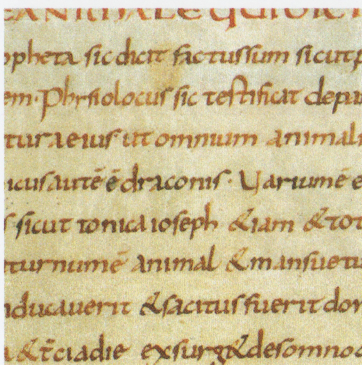 EANIMALEQUIDIC
opheta sic dicit factussum sicutp
em. Phisiolocus sic testificat depan
turaeius ut omnium animali
icusautē ē draconis. Uariumē e
s sicut tonica ioseph &iam &tot
eturnumē animal &mansuetu
nducauerit &sacitusfuerit dor
&t̄ciadie exsurg&desomno